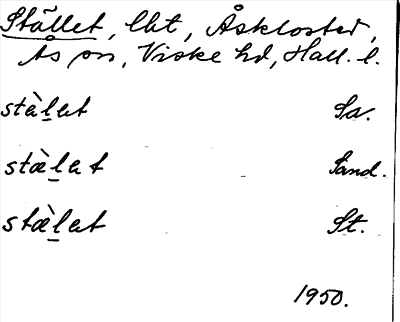 Stället, lht, Åskloster,
Ås sn, Viske hd, Hall. l.
stæ̀l̲at Sa.
stæ̀l̲at Sand.
stæ̀l̲at St.
1950.